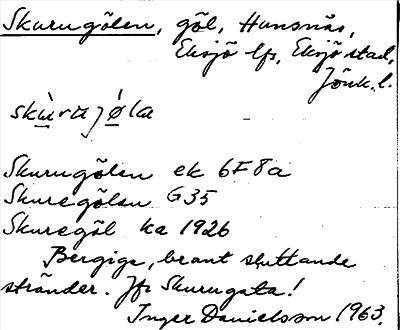 Skurugölen, göl, Hunsnäs,
Eksjö lfs, Eksjö stad,
Jönk. l.
skùrujǿla
Skurugölen ek 6F8a
Skuregölen G35
Skuregöl ka 1926
Bergige, brant sluttande
stränder. Jfr Skurugata!
Inger Danielsson 1963.